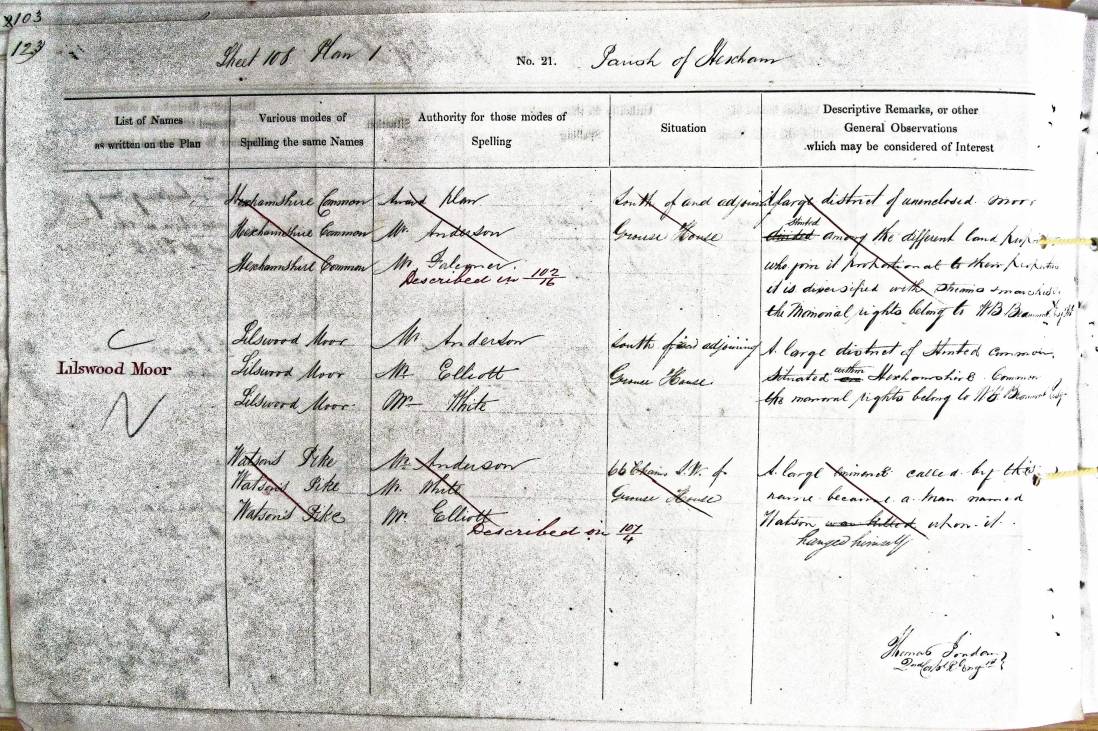 103
123
Sheet 108 Plan 1 No. 21. Parish of Hexham
List of Names
as written on the Plan
Various modes of
Spelling the same Names
Authority for those modes of
Spelling
Situation
Descriptive Remarks, or other
General Observations
which may be considered of Interest
Hexhamshire Common Award Plan South of and adjoining A large district of unenclosed moor
Hexhamshire Common Mr. Anderson Grouse House divided stinted among the different land
Hexhamshire Common Mr. Falconer. who join it proportional to their
Described in 107/16
it is diversified with streams
the Manorial rights belong to W B Beaumont Esq
Lilswood Moor
Lilswood Moor Mr. Anderson South of and adjoining A large district of Stinted common
Lilswood Moor Mr. Elliott Grouse House Situated within Hexhamshire Common
Lilswood Moor Mr. White the manorial rights belong to W B Beaumont Esq
Watson's Pike Mr. Anderson 66 Chains S.W. of A large eminence called by this
Watson's Pike Mr. White Grouse House name because a man named
Watson's Pike Mr. Elliott Watson was killed upon it.
hanged himself
Described in 107/4
Thomas Jordan
2nd Corpl R Engrs